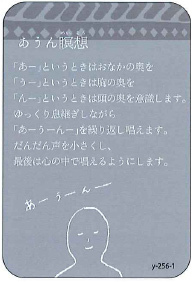 あうん瞑想
「あー」というときはおなかの奥を
「うー」というときは胸の奥を
「んー」というときは頭の奥を意識します。
ゆっくり息継ぎしながら
「あーうーんー」を繰り返し唱えます。
だんだん声を小さくし、
最後は心の中で唱えるようにします。
あーうーんー
y-256-1